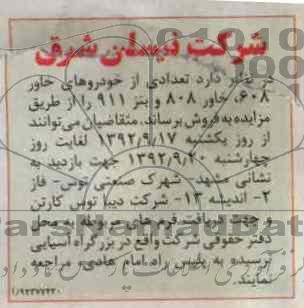 شرکت ذیسلن شرق
در نظر دارد تعدادی از خودروهای خاور
۶۰۸، خاور ۸۰۸ و بنز ۹۱۱ را از طریق
مزایده به فروش برساند. متقاضیان می‌توانند
از روز یکشنبه ۱۳۹۲/۹/۱۷ لغایت روز
چهارشنبه ۱۳۹۲/۹/۲۰ جهت بازدید به
نشانی مشهد- شهرک صنعتی توس- فاز
۲- اندیشه ۱۳- شرکت دیبا توس کارتن
و جهت دریافت فرم‌های مربوطه به محل
دفتر حقوقی شرکت واقع در بزرگراه آسیایی
نرسیده به پلیس راه امام هادی، مراجعه
نمایند.